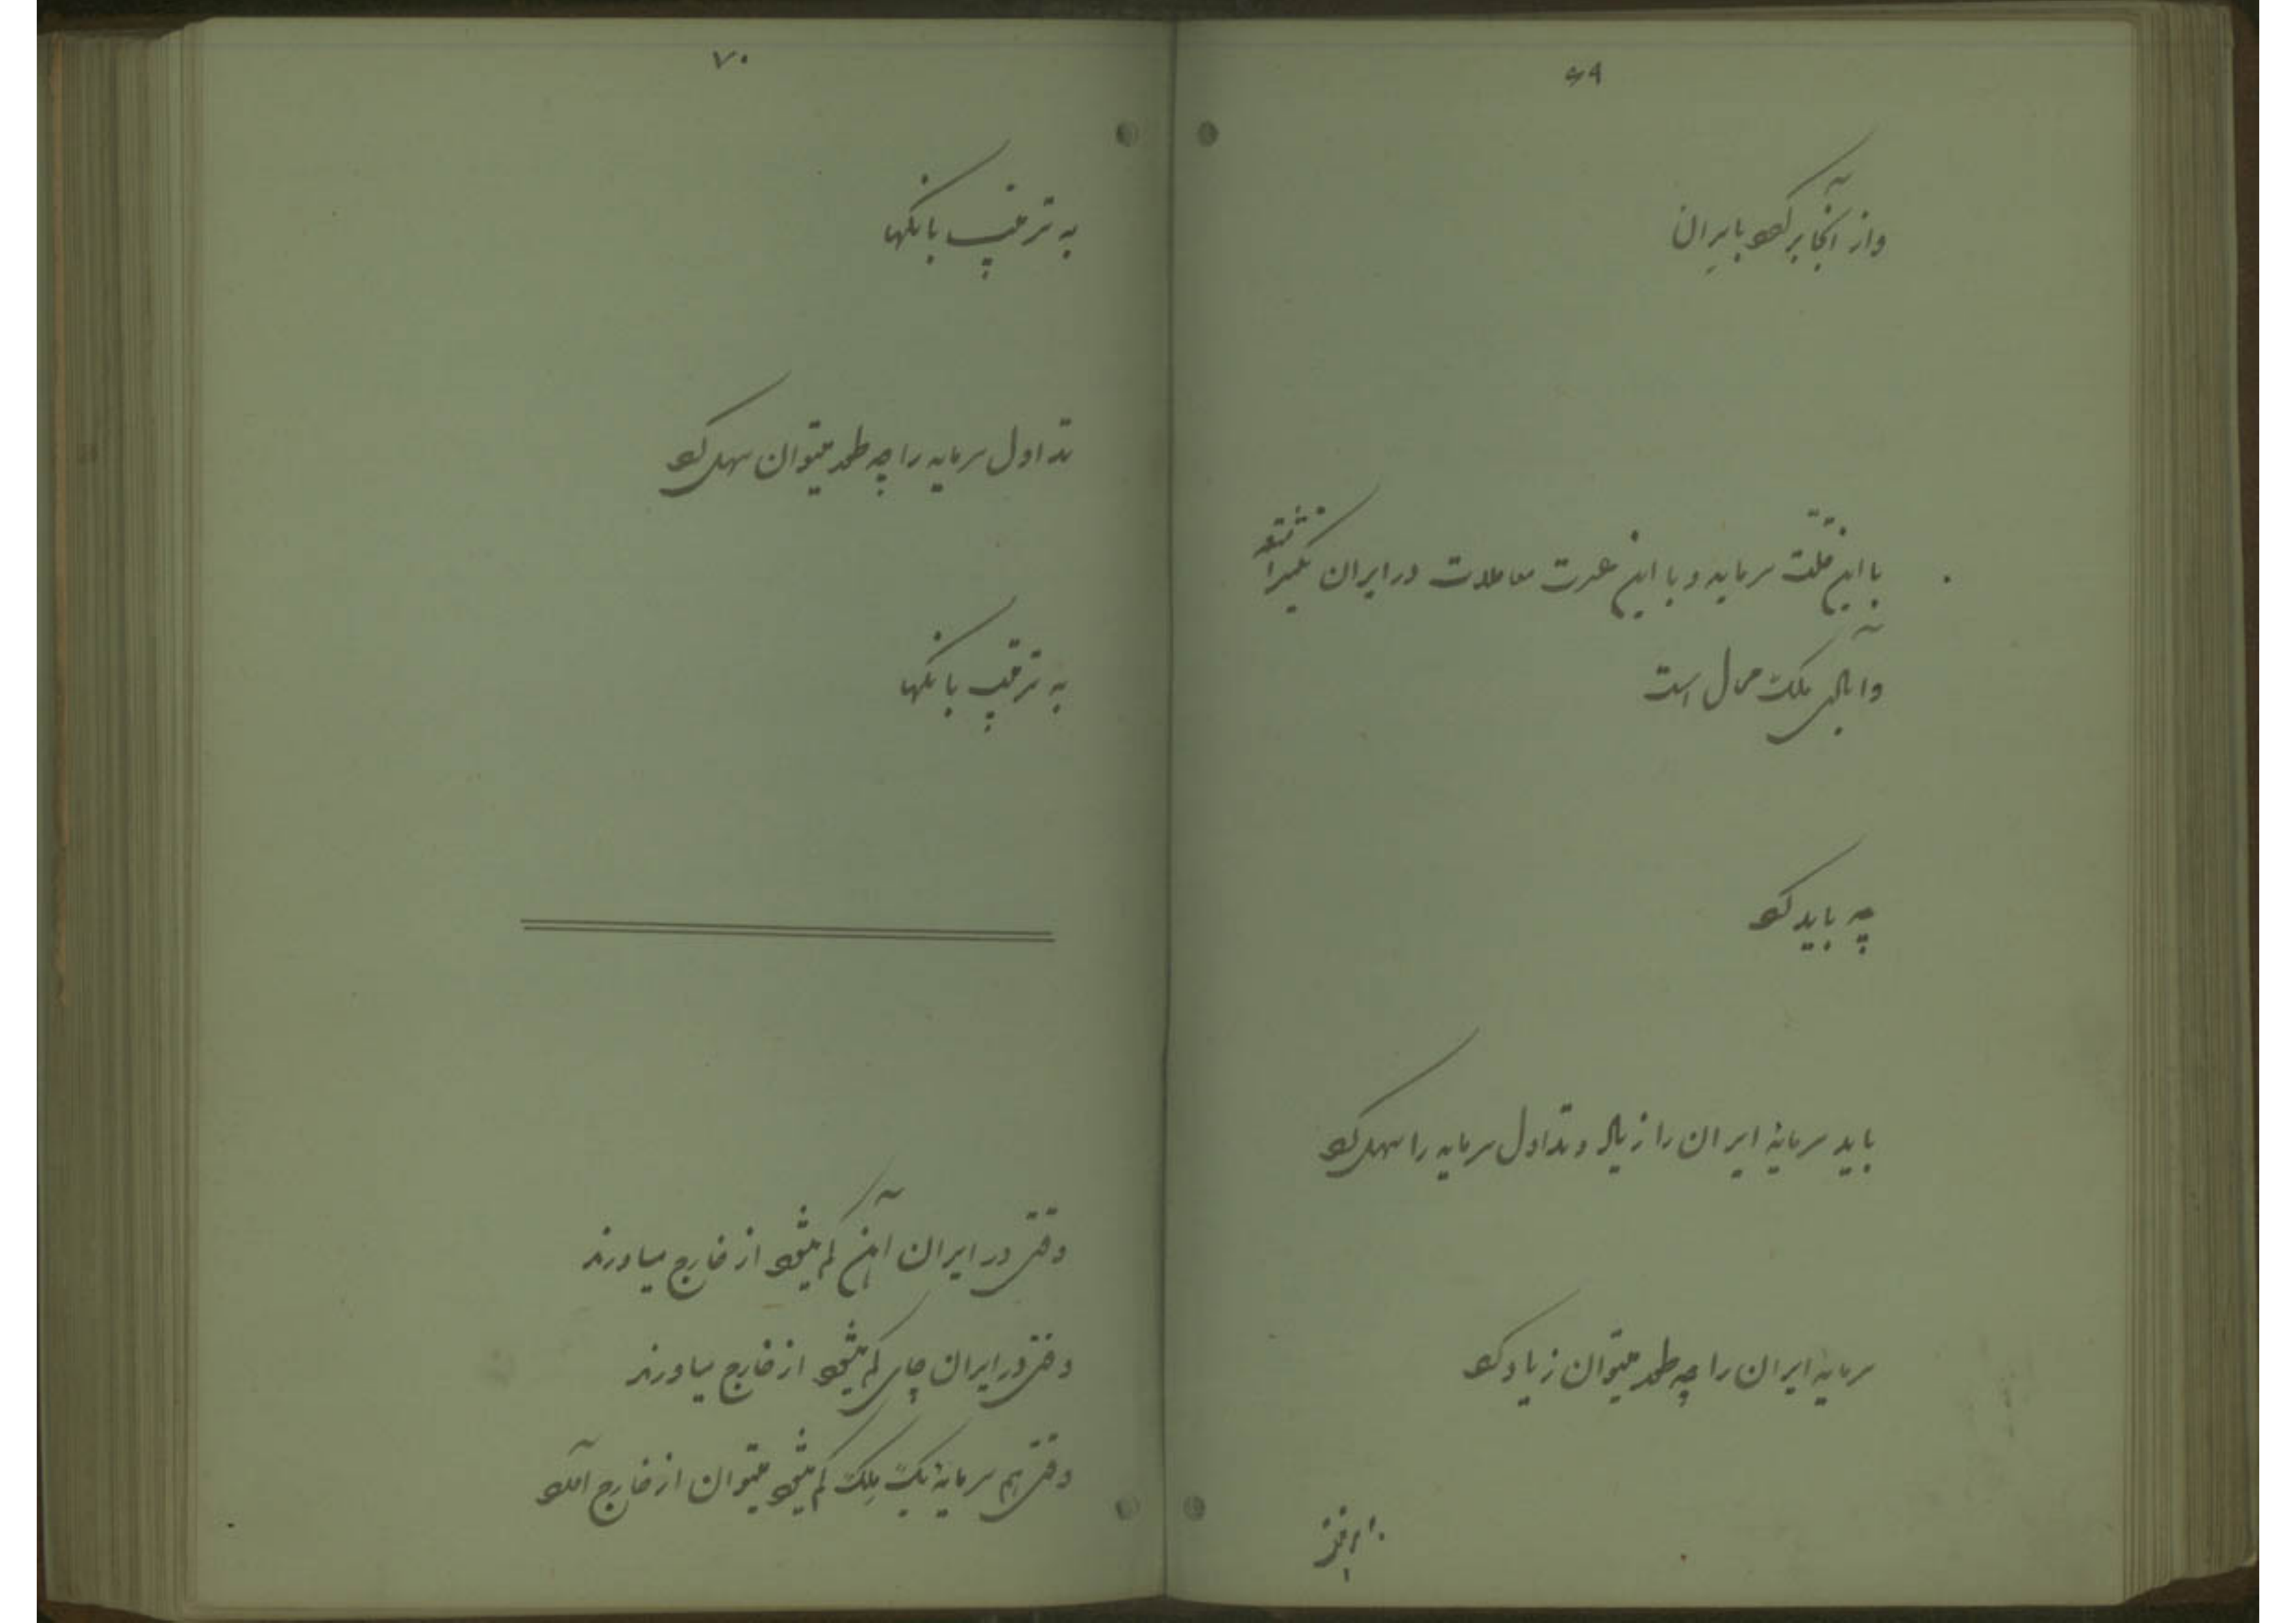 ۶۹
واز آنجا برگرد بایران
با این قلت سرمایه و با این عسرت معاملات در ایران تکثیر
و آبادی ملک محال است
چه باید کرد
باید سرمایهٔ ایران را زیاد و تداول سرمایه را سهل کرد
سرمایهٔ ایران را چه طور میتوان زیاد کرد
۷۰
به ترتیب بانکها
تداول سرمایه را چه طور میتوان سهل کرد
به ترتیب بانکها
وقتی در ایران آهن کم میشود از خارج میاورند
وقتی در ایران چای کم میشود از خارج میاورند
وقتی هم سرمایهٔ یک ملک کم میشود میتوان از خارج آورد